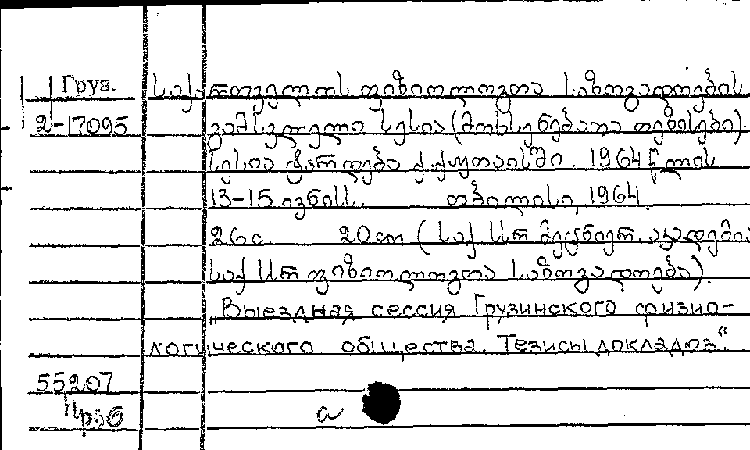 Груз. საქართველოს ფიზიოლოგთა საზოგადოების
2-17095 გამსვლელი სესია (მოხსენებათა თეზისები).
სესია ტარდება ქ. ქუთაისში 1964 წლის
13-15 ივნისს. თბილისი, 1964.
26 с. 20 см (საქ. სსრ მეცნიერ. აკადემია
საქ. სსრ ფიზიოლოგთა საზოგადოება).
„Выездная сессия Грузинского физио-
логического общества. Тезисы докладов“.
55207
а